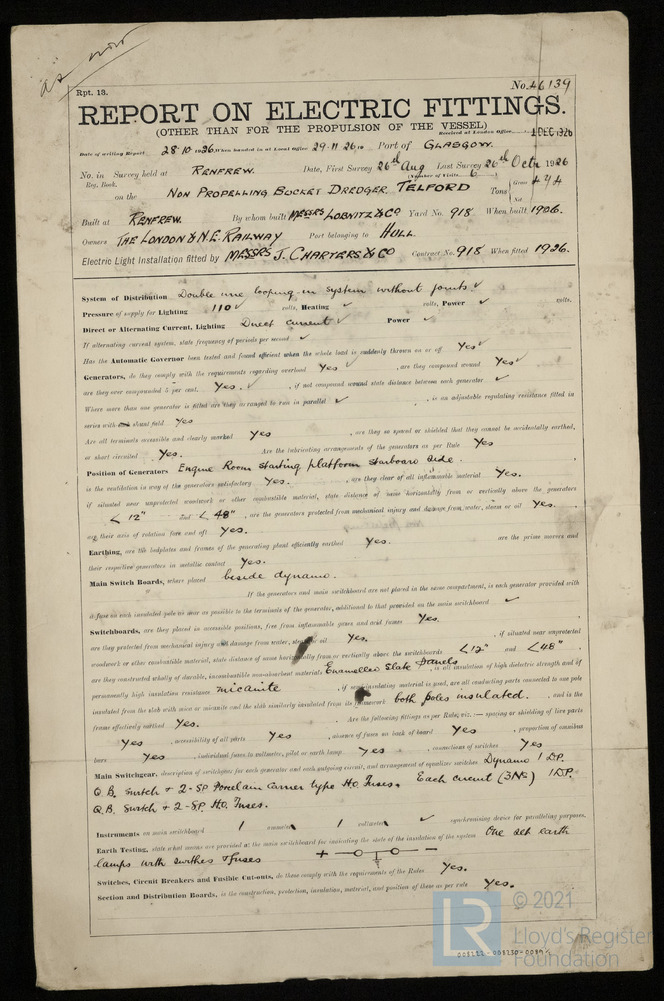 as now
Rpt. 13.
No. 46139
REPORT ON ELECTRIC FITTINGS.
(OTHER THAN FOR THE PROPULSION OF THE VESSEL)
Received at London Office 1 DEC 1926
Date of writing Report 28.10.1926. When handed in at Local Office 29.11.26 Port of GLASGOW.
No. in Survey held at RENFREW. Date, First Survey 26th Aug Last Survey 26th Octr 1926
Reg. Book. (Number of Visits 6)
on the NON PROPELLING BUCKET DREDGER TELFORD Tons Gross 474
Net
Built at RENFREW. By whom built MESSRS LOBNITZ & CO Yard No. 918 When built 1926.
Owners THE LONDON & N.E. RAILWAY Port belonging to HULL
Electric Light Installation fitted by MESSRS J. CHARTERS & CO Contract No. 918 When fitted 1926.
System of Distribution Double wire looping-in system without joints
Pressure of supply for Lighting 110 volts, Heating volts, Power volts.
Direct or Alternating Current, Lighting Direct current Power
If alternating current system, state frequency of periods per second
Has the Automatic Governor been tested and found efficient when the whole load is suddenly thrown on or off Yes
Generators, do they comply with the requirements regarding overload Yes, are they compound wound Yes
are they over compounded 5 per cent. Yes., if not compound wound state distance between each generator
Where more than one generator is fitted are they arranged to run in parallel, is an adjustable regulating resistance fitted in
series with shunt field Yes
Are all terminals accessible and clearly marked Yes, are they so spaced or shielded that they cannot be accidentally earthed,
or short circuited Yes. Are the lubricating arrangements of the generators as per Rule Yes
Position of Generators Engine Room starting platform starboard side.
is the ventilation in way of the generators satisfactory Yes., are they clear of all inflammable material Yes.
if situated near unprotected woodwork or other combustible material, state distance of same horizontally from or vertically above the generators
< 12" and < 48", are the generators protected from mechanical injury and damage from water, steam or oil Yes.
are their axis of rotation fore and aft Yes.
Earthing, are the bedplates and frames of the generating plant efficiently earthed Yes. are the prime movers and
their respective generators in metallic contact Yes.
Main Switch Boards, where placed beside dynamo.
If the generators and main switchboard are not placed in the same compartment, is each generator provided with
a fuse on each insulated pole as near as possible to the terminals of the generator, additional to that provided on the main switchboard
Switchboards, are they placed in accessible positions, free from inflammable gases and acid fumes Yes.
are they protected from mechanical injury and damage from water, steam or oil Yes., if situated near unprotected
woodwork or other combustible material, state distance of same horizontally from or vertically above the switchboards < 12" and < 48"
are they constructed wholly of durable, incombustible non-absorbent materials Enamelled Slate Panels, is all insulation of high dielectric strength and of
permanently high insulation resistance micanite, if insulating material is used, are all conducting parts connected to one pole
insulated from the slab with mica or micanite and the slab similarly insulated from its framework both poles insulated., and is the
frame effectively earthed Yes. Are the following fittings as per Rule, viz.:— spacing or shielding of live parts
Yes, accessibility of all parts Yes, absence of fuses on back of board Yes, proportion of omnibus
bars Yes, individual fuses to voltmeter, pilot or earth lamp Yes, connections of switches Yes
Main Switchgear, description of switchgear for each generator and each outgoing circuit, and arrangement of equalizer switches Dynamo 1 DP.
Q.B. Switch & 2-SP Porcelain Carrier type Ho. Fuses. Each circuit (3 No) 1 DP.
Q.B. Switch & 2-S.P. Ho. Fuses.
Instruments on main switchboard 1 ammeter 1 voltmeter synchronising device for paralleling purposes.
Earth Testing, state what means are provided at the main switchboard for indicating the state of the insulation of the system One set earth
lamps with switches & fuses + −
Switches, Circuit Breakers and Fusible Cut-outs, do these comply with the requirements of the Rules Yes.
Section and Distribution Boards, is the construction, protection, insulation, material, and position of these as per rule Yes.
LR © 2021
Lloyd's Register
Foundation